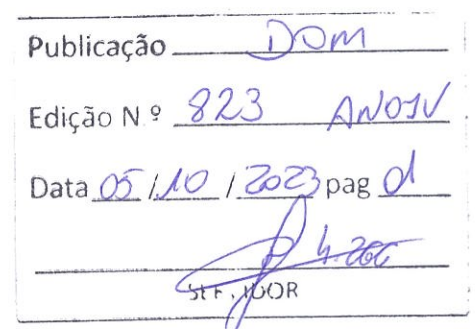 Publicação DOM
Edição N.º 823 ANO IV
Data 05/10/2023 pag